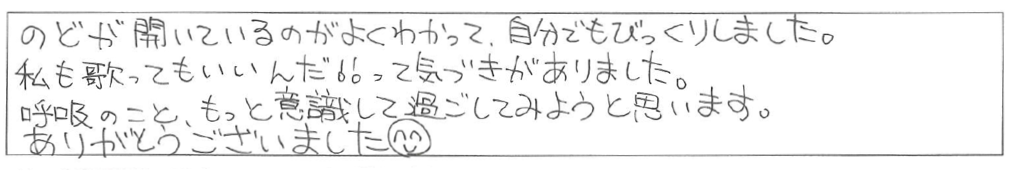 のどが開いているのがよくわかって、自分でもびっくりしました。
私も歌ってもいいんだ!!って気づきがありました。
呼吸のこと、もっと意識して過ごしてみようと思います。
ありがとうございました